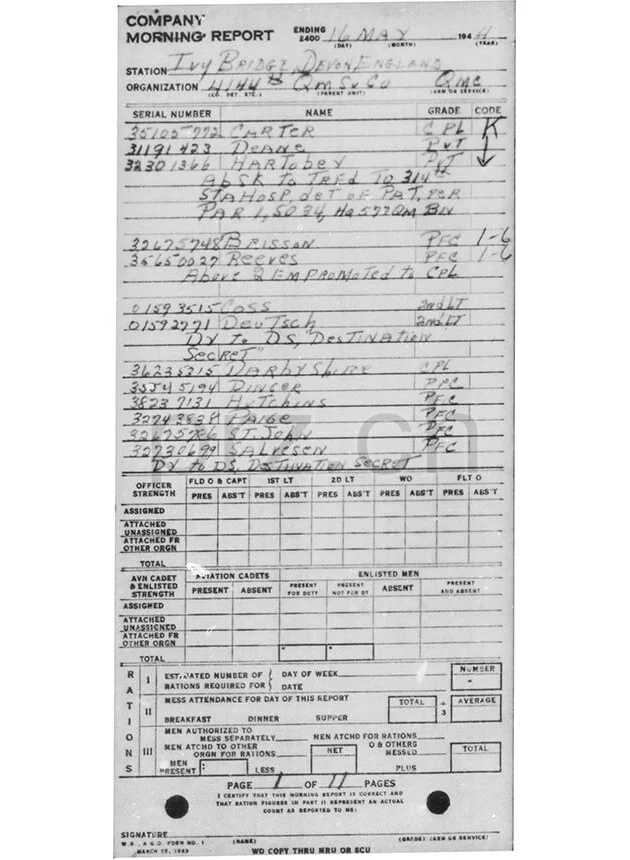 COMPANY
MORNING REPORT ENDING 2400 16 MAY 194 4
(DAY) (MONTH) (YEAR)
STATION Ivy Bridge, Devon England
ORGANIZATION 4144th QM Sv Co QMC
(CO. DET. ETC.) (PARENT UNIT) (ARM OR SERVICE)
SERIAL NUMBER NAME GRADE CODE
35105772 CARTER CPL K
31191423 DEANE PvT
32301366 HARTOBEY PvT
Ab SK to TRFD TO 314th
STA HOSP, det of PAT, PER
PAR 1, SO 34, Hq 577 QM BN
32675748 BRISSON PFC 1-6
35650027 Reeves PFC 1-6
Above 2 EM PROMOTED to CPL
01593515 COSS 2nd LT
01592771 Deutsch 2nd LT
DY to DS, "DESTINATION
Secret"
36235315 DARBYSHIRE CPL
35545194 DINGER PFC
38237131 HUTCHINS PFC
32743838 PAIGE PFC
32675786 ST. JOHN PFC
32730699 SALVESEN PFC
DY to DS, DESTINATION SECRET
OFFICER STRENGTH FLD O & CAPT 1ST LT 2D LT WO FLT O
PRES ABS'T PRES ABS'T PRES ABS'T PRES ABS'T PRES ABS'T
ASSIGNED
ATTACHED UNASSIGNED
ATTACHED FR OTHER ORGN
TOTAL
AVN CADET & ENLISTED STRENGTH AVIATION CADETS ENLISTED MEN
PRESENT ABSENT PRESENT FOR DUTY PRESENT NOT FOR DY ABSENT PRESENT AND ABSENT
ASSIGNED
ATTACHED UNASSIGNED
ATTACHED FR OTHER ORGN
TOTAL
RATIONS
I ESTIMATED NUMBER OF RATIONS REQUIRED FOR DAY OF WEEK DATE NUMBER
II MESS ATTENDANCE FOR DAY OF THIS REPORT TOTAL ÷ 3 AVERAGE
BREAKFAST DINNER SUPPER
III MEN AUTHORIZED TO MESS SEPARATELY MEN ATCHD FOR RATIONS
MEN ATCHD TO OTHER ORGN FOR RATIONS NET O & OTHERS MESSED TOTAL
MEN PRESENT LESS PLUS
PAGE 1 OF 11 PAGES
I CERTIFY THAT THIS MORNING REPORT IS CORRECT AND
THAT RATION FIGURES IN PART II REPRESENT AN ACTUAL
COUNT AS REPORTED TO ME:
SIGNATURE
W.D., A.G.O. FORM NO. 1 (NAME) (GRADE) (ARM OR SERVICE)
MARCH 15, 1943
WD COPY THRU MRU OR SCU